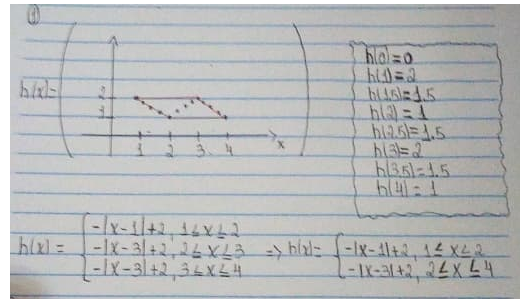 ①
h(x)=
2
1
1 2 3 4 x
h(0)=0
h(1)=2
h(1.5)=1.5
h(2)=1
h(2.5)=1.5
h(3)=2
h(3.5)=1.5
h(4)=1
h(x) = { -|x-1|+2, 1≤x≤2
-|x-3|+2, 2≤x≤3
-|x-3|+2, 3≤x≤4
=> h(x)= { -|x-1|+2, 1≤x≤2
-|x-3|+2, 2≤x≤4